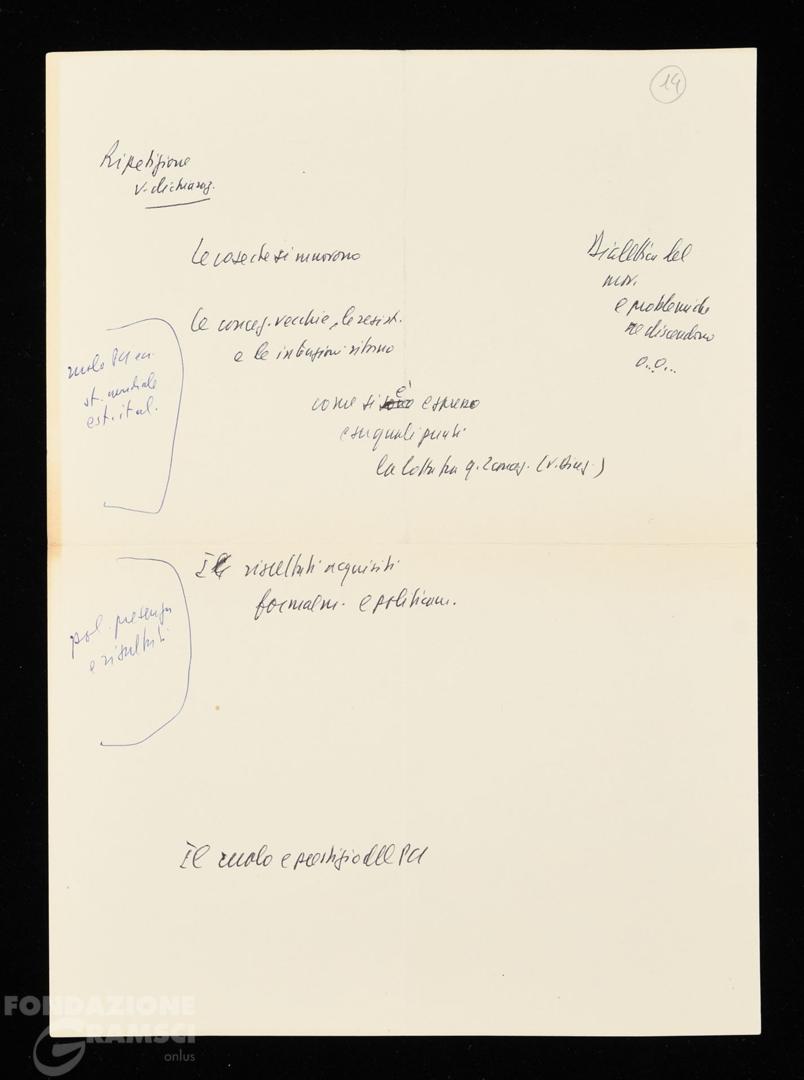 14
Ripetizione
v. dichiaraz.
Le cose che si muovono
Dialettica del
mov.
e problemi che
ne discendono
o..o...
Le concez. vecchie, le resist.
e le intuizioni ritorno
ruolo PCI
st. mondiale
est. ital.
come si sono è espresso
e su quali punti
la lotta tra q. 2 concez. (v. )
I risultati acquisiti
formalm. e politicam.
pol. presenza
e risultati
Il ruolo e prestigio del PCI
FONDAZIONE
GRAMSCI
onlus